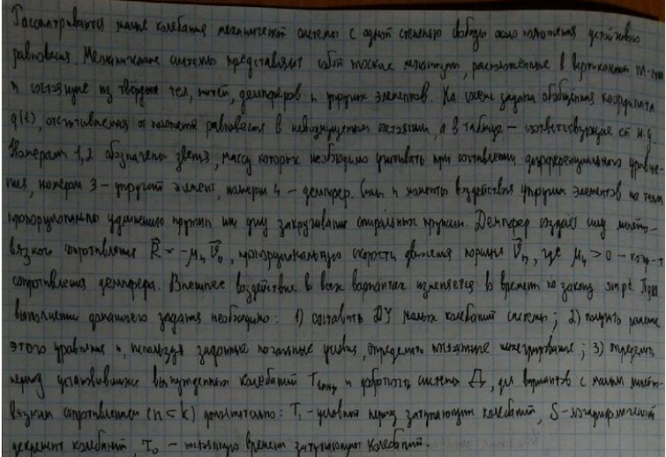 Рассматриваются малые колебания механической системы с одной степенью свободы около положения устойчивого
равновесия. Механические системы представляют собой плоские механизмы, расположенные в вертикальной пл-ти
и состоящие из твёрдых тел, нитей, демпферов и упругих элементов. На схеме задана обобщённая координата
q(t), отсчитываемая от положения равновесия в невозмущённом состоянии, а в таблице – соответствующие ей н.у.
Номерами 1,2 обозначены звенья, массу которых необходимо учитывать при составлении дифференциального уравне-
ния, номером 3 – упругий элемент, номером 4 – демпфер. Силы и моменты воздействия упругих элементов на тела
пропорциональны удлинению пружин или углу закручивания спиральных пружин. Демпфер создаёт силу
вязкого сопротивления R = -μ₄ V̄п, пропорциональную скорости движения поршня V̄п, где μ₄ > 0 – коэф-т
сопротивления демпфера. Внешнее воздействие во всех вариантах изменяется во времени по закону sin pt. При
выполнении домашнего задания необходимо: 1) составить ДУ малых колебаний системы; 2) получить решение
этого уравнения и, используя заданные начальные условия, определить постоянные интегрирования; 3) определить
период установившихся вынужденных колебаний и добротность системы Д, для вариантов с малым
вязким сопротивлением (n < k) дополнительно: T₁ – условный период затухающих колебаний, δ – логарифмический
декремент колебаний, τ₀ – постоянную времени затухающих колебаний.